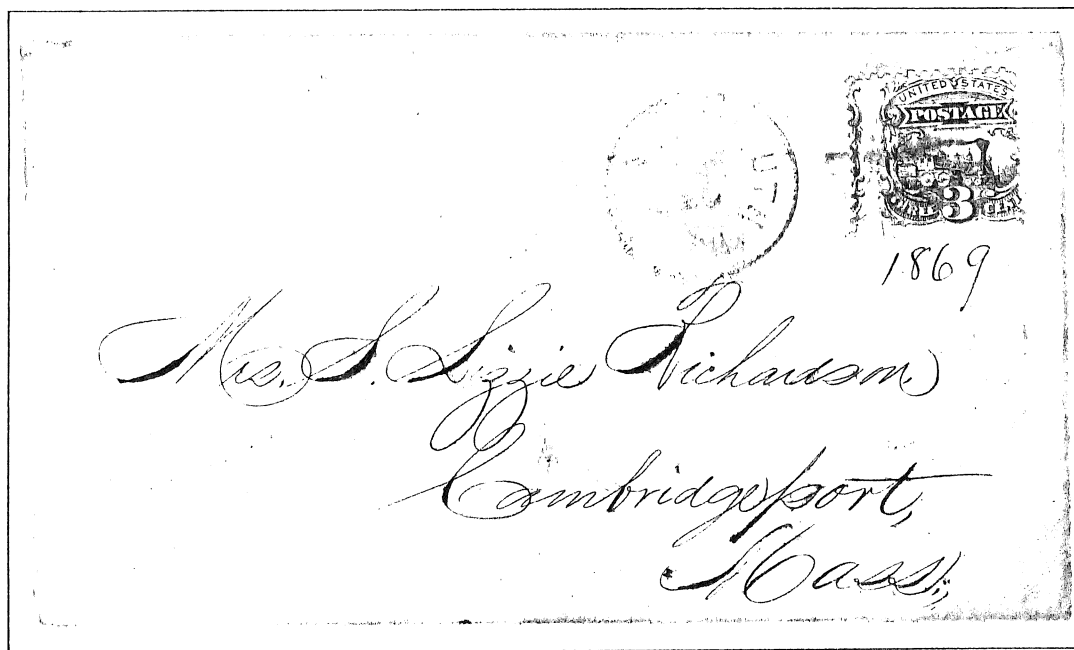 UNITED STATES
POSTAGE
THREE 3 CENTS
1869
Mrs. S. Lizzie Richardson,
Cambridgeport,
Mass.,